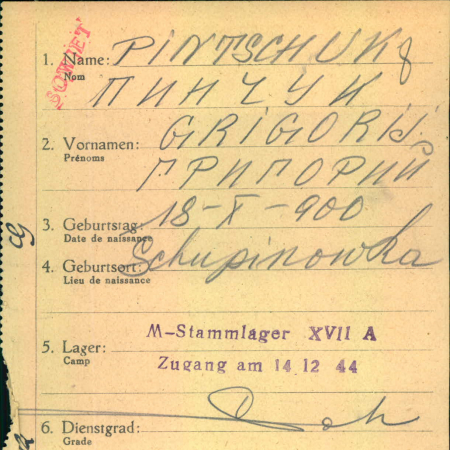 SOWJET
1. Name: PINTSCHUK
Nom
ПИНЧУК
2. Vornamen: GRIGORIJ
Prénoms
ГРИГОРИЙ
3. Geburtstag: 18-X-900
Date de naissance
4. Geburtsort: Schupinowka
Lieu de naissance
M-Stammlager XVII A
5. Lager:
Camp
Zugang am 14 12 44
6. Dienstgrad:
Grade